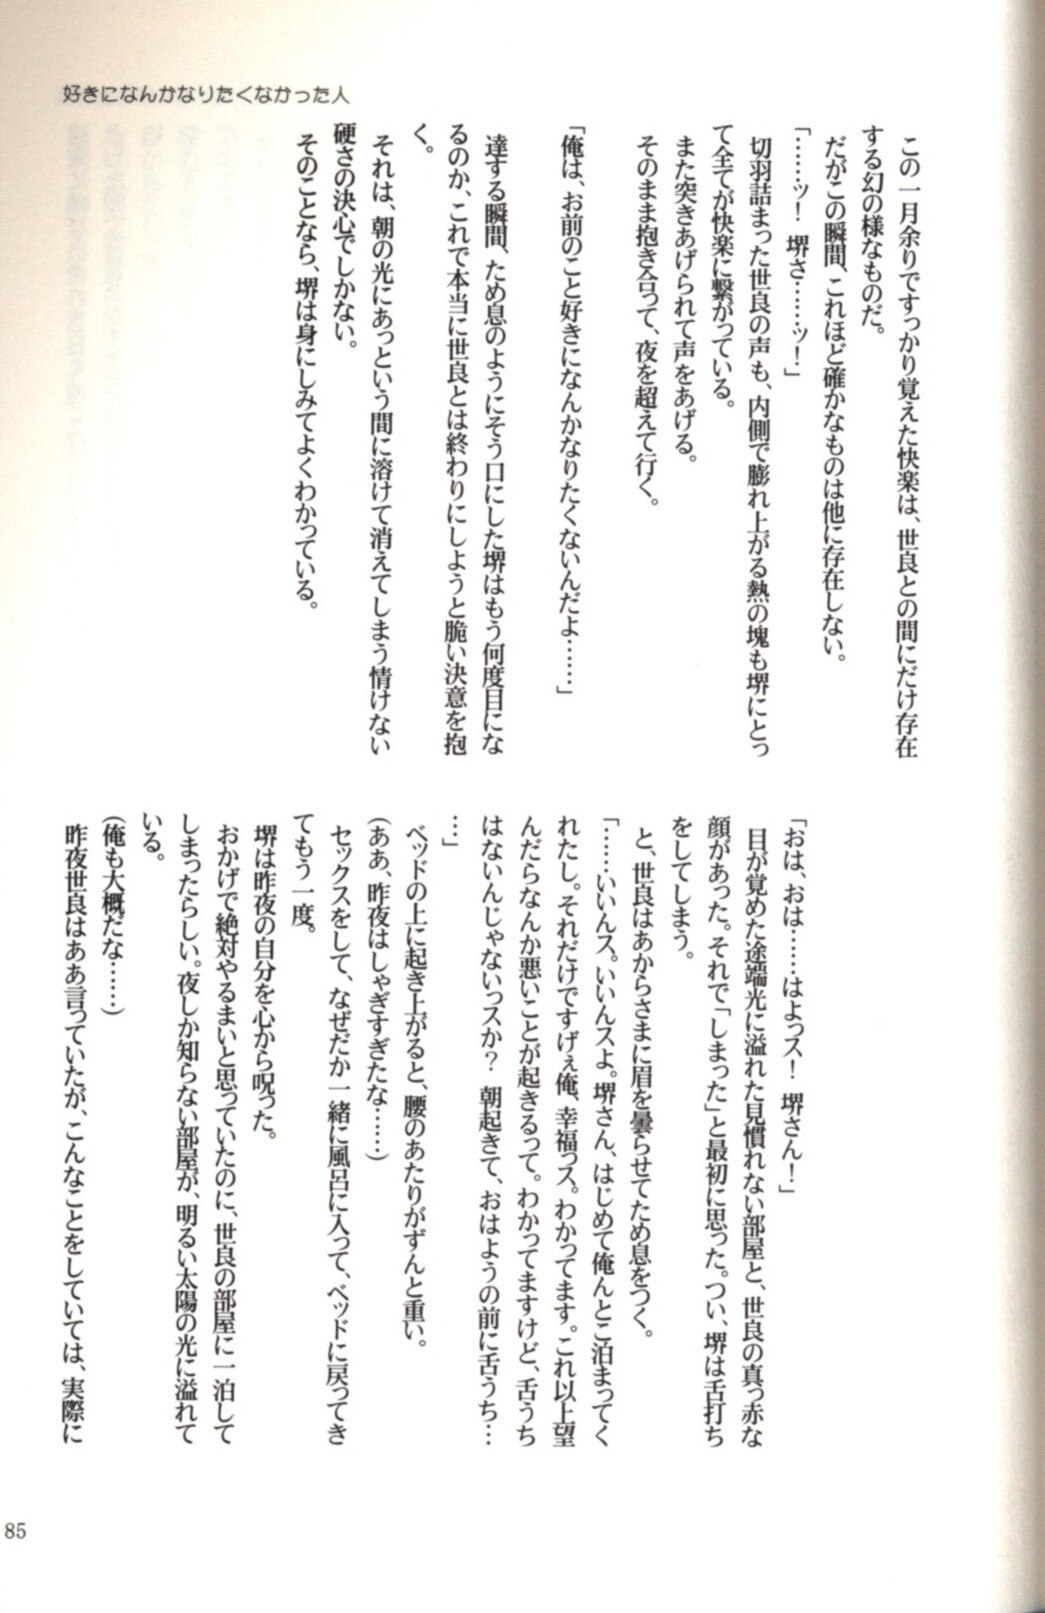 好きになんかなりたくなかった人
この一月余りですっかり覚えた快楽は、世良との間にだけ存在
する幻の様なものだ。
だがこの瞬間、これほど確かなものは他に存在しない。
「……ッ！　堺さ……ッ！」
切羽詰まった世良の声も、内側で膨れ上がる熱の塊も堺にとっ
て全てが快楽に繋がっている。
また突きあげられて声をあげる。
そのまま抱き合って、夜を超えて行く。
「俺は、お前のこと好きになんかなりたくないんだよ……」
達する瞬間、ため息のようにそう口にした堺はもう何度目にな
るのか、これで本当に世良とは終わりにしようと脆い決意を抱
く。
それは、朝の光にあっという間に溶けて消えてしまう情けない
硬さの決心でしかない。
そのことなら、堺は身にしみてよくわかっている。
「おは、おは……はよっス！　堺さん！」
目が覚めた途端光に溢れた見慣れない部屋と、世良の真っ赤な
顔があった。それで「しまった」と最初に思った。つい、堺は舌打ち
をしてしまう。
と、世良はあからさまに眉を曇らせてため息をつく。
「……いいんス。いいんスよ。堺さん、はじめて俺んとこ泊まってく
れたし。それだけですげぇ俺、幸福っス。わかってます。これ以上望
んだらなんか悪いことが起きるって。わかってますけど、舌うち
はないんじゃないっスか？　朝起きて、おはようの前に舌うち…
…」
ベッドの上に起き上がると、腰のあたりがずんと重い。
(ああ、昨夜はしゃぎすぎたな……)
セックスをして、なぜだか一緒に風呂に入って、ベッドに戻ってき
てもう一度。
堺は昨夜の自分を心から呪った。
おかげで絶対やるまいと思っていたのに、世良の部屋に一泊して
しまったらしい。夜しか知らない部屋が、明るい太陽の光に溢れて
いる。
(俺も大概だな……)
昨夜世良はああ言っていたが、こんなことをしていては、実際に
85